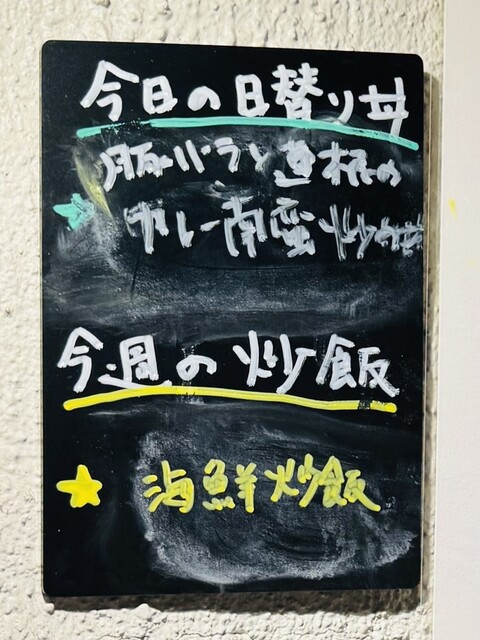 今日の日替り丼
豚バラと蓮根の
カレー南蛮炒め丼
今週の炒飯
海鮮炒飯